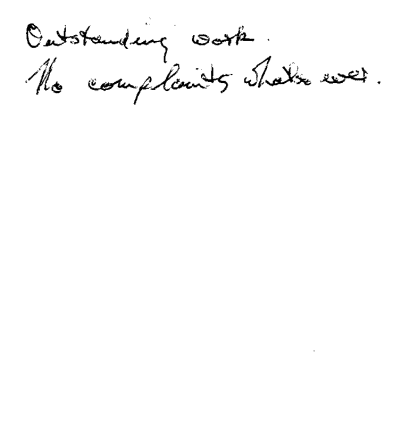 Outstanding work.
No complaints whatso ever.